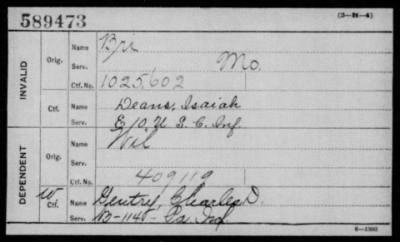 589473
(3—M—4)
INVALID
Orig.
Name
Serv.
Mo.
Ctf. No. 1025,602
Ctf.
Name Deans, Isaiah
Serv. E/ U S. C. Inf.
DEPENDENT
Orig.
Name Wil
Serv.
Ctf. No. 409119
W
Ctf.
Name Gentry, Charles D.
Serv. Pa. Inf.